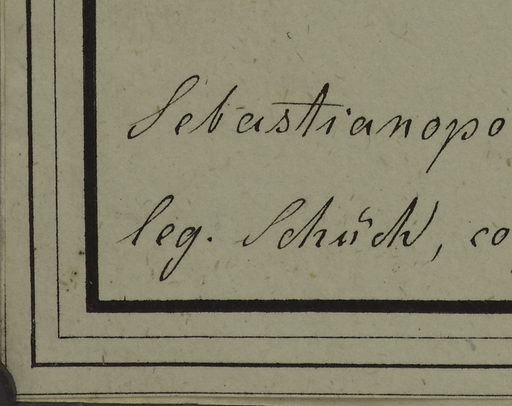 Sebastianopo
leg. Schück, co